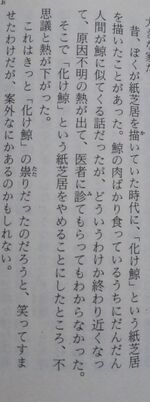 昔、ぼくが紙芝居を描いていた時代に、「化け鯨」という紙芝居
を描いたことがあった。鯨の肉ばかり食っているうちにだんだん
人間が鯨に似てくる話だったが、どういうわけか終わり近くなっ
て、原因不明の熱が出て、医者に診てもらってもわからなかった。
そこで「化け鯨」という紙芝居をやめることにしたところ、不
思議と熱が下がった。
これはきっと「化け鯨」の祟りだったのだろうと、笑ってすま
せたわけだが、案外なにかあるのかもしれない。